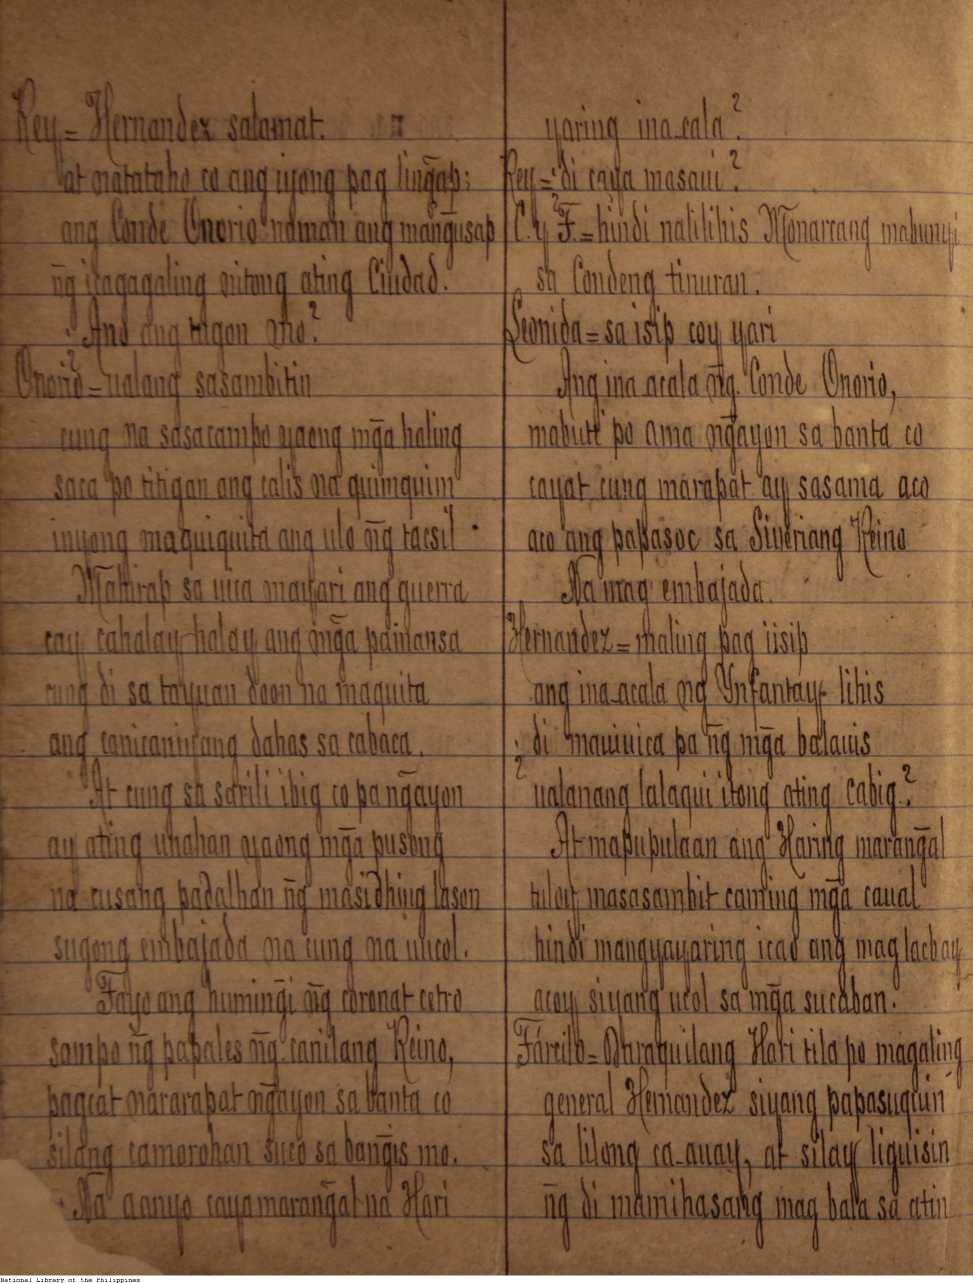 Rey = Hernandez salamat.
at natataho co ang iyong pag ling̃ap;
ang Conde Onorio naman ang mang̃usap
n͠g icagagaling nitong ating Ciudad.
Ano ang tugon mo?
Onorio = ualang sasambitin
cung na sasacampo yaong mg̃a haling
saca po titigan ang calis na quimquim
inyong maquiquita ang ulo n͠g tacsil.
Mahirap sa uica mayari ang guerra
cay cahalay halay ang mg̃a pamansa
cung di sa tayuan doon na maquita
ang canicanircang dahas sa cabaca.
At cung sa sarili ibig co pa ng̃ayon
ay ating unahan yaong mg̃a pusong
na cusang padalhan n͠g masidhing lason
sugong embajada na cung na uucol.
Tayo ang huming̃i n͠g corona't cetro
sampo n͠g papales n͠g canilang Reino,
pagcat nararapat ng̃ayon sa banta co
silang camorohan suco sa bang̃is mo.
Na aanyo caya marang̃al na Hari
yaring ina_cala?
Rey = di caya masaui?
C. y F. = hindi nalilihis Monarcang mabunyi
sa Condeng tinuran.
Leonida = sa isip coy yari
Ang ina_acala n͠g Conde Onorio,
mabuti po ama ng̃ayon sa banta co
cayat cung marapat ay sasama aco
aco ang papasoc sa Siveriang Reino
Na mag embajada.
Hernandez = maling pag iisip
ang ina_acala ng Ynfantay lihis
di mauiuica pa n͠g mg̃a balauis
ualanang lalaqui itong ating cabig?
At mapupulaan ang Haring marang̃al
tuloy masasambit caming mg̃a caual
hindi mangyayaring icao ang mag lacbay
acoy siyang ucol sa mg̃a sucaban.
Farcilo = Daraquilang Hari tila po magaling
general Hernandez siyang papasuquin
sa lilong ca_auay, at silay liguisin
n͠g di mamihasang mag bala sa atin
National Library of the Philippines